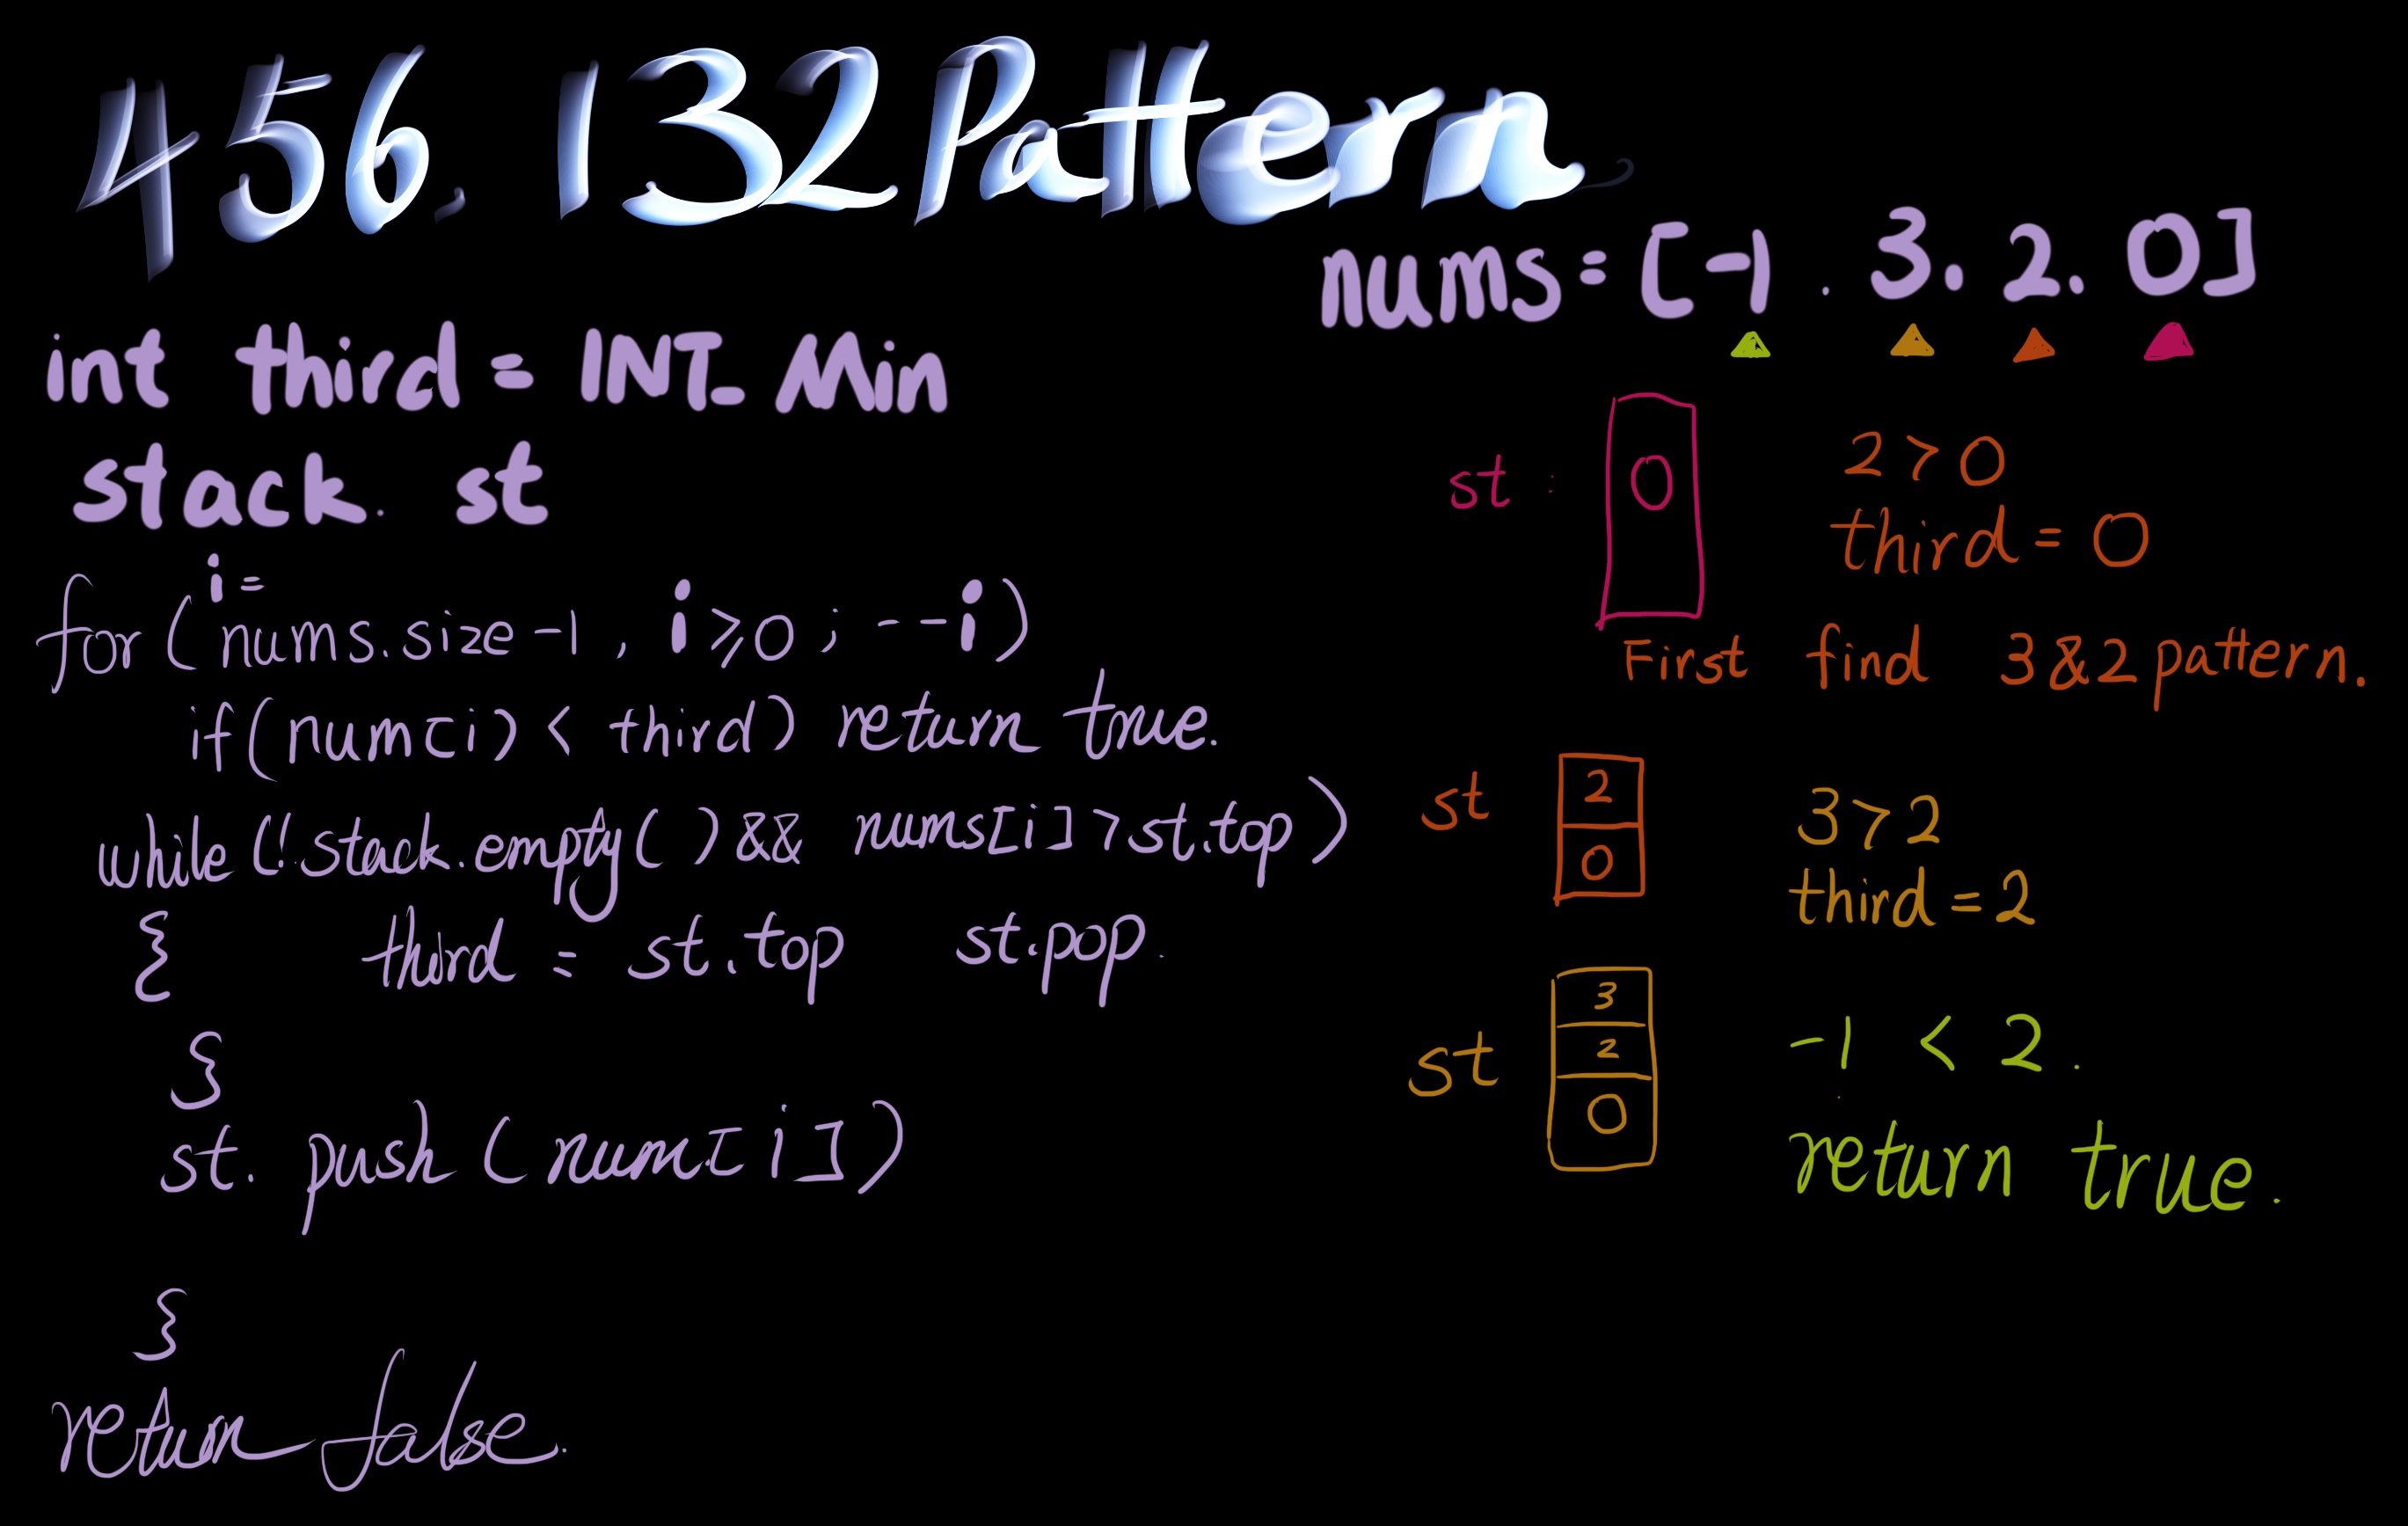 456. 132 Pattern
nums = [-1 . 3. 2. 0]
int third = INT_Min
stack. st
i =
for ( nums.size-1 , i ⩾ 0 ; --i )
if(num[i) < third) return true.
while (!stack.empty( ) && nums[i] > st.top )
{ third = st.top st.pop.
}
st. push ( num[i])
}
return false.
st : 0
2 > 0
third = 0
First find 3 & 2 pattern.
st 2
0
3 > 2
third = 2
st 3
2
0
-1 < 2 .
return true.